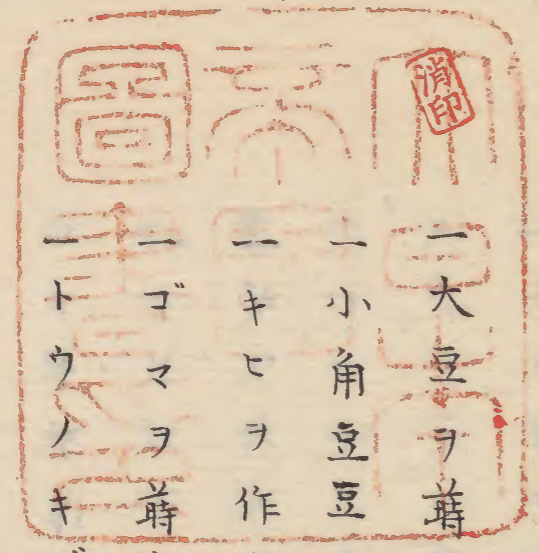 一大豆ヲ蒔
一小角豆豆
一キヒヲ作
一ゴマヲ蒔
一トウノキ
消印